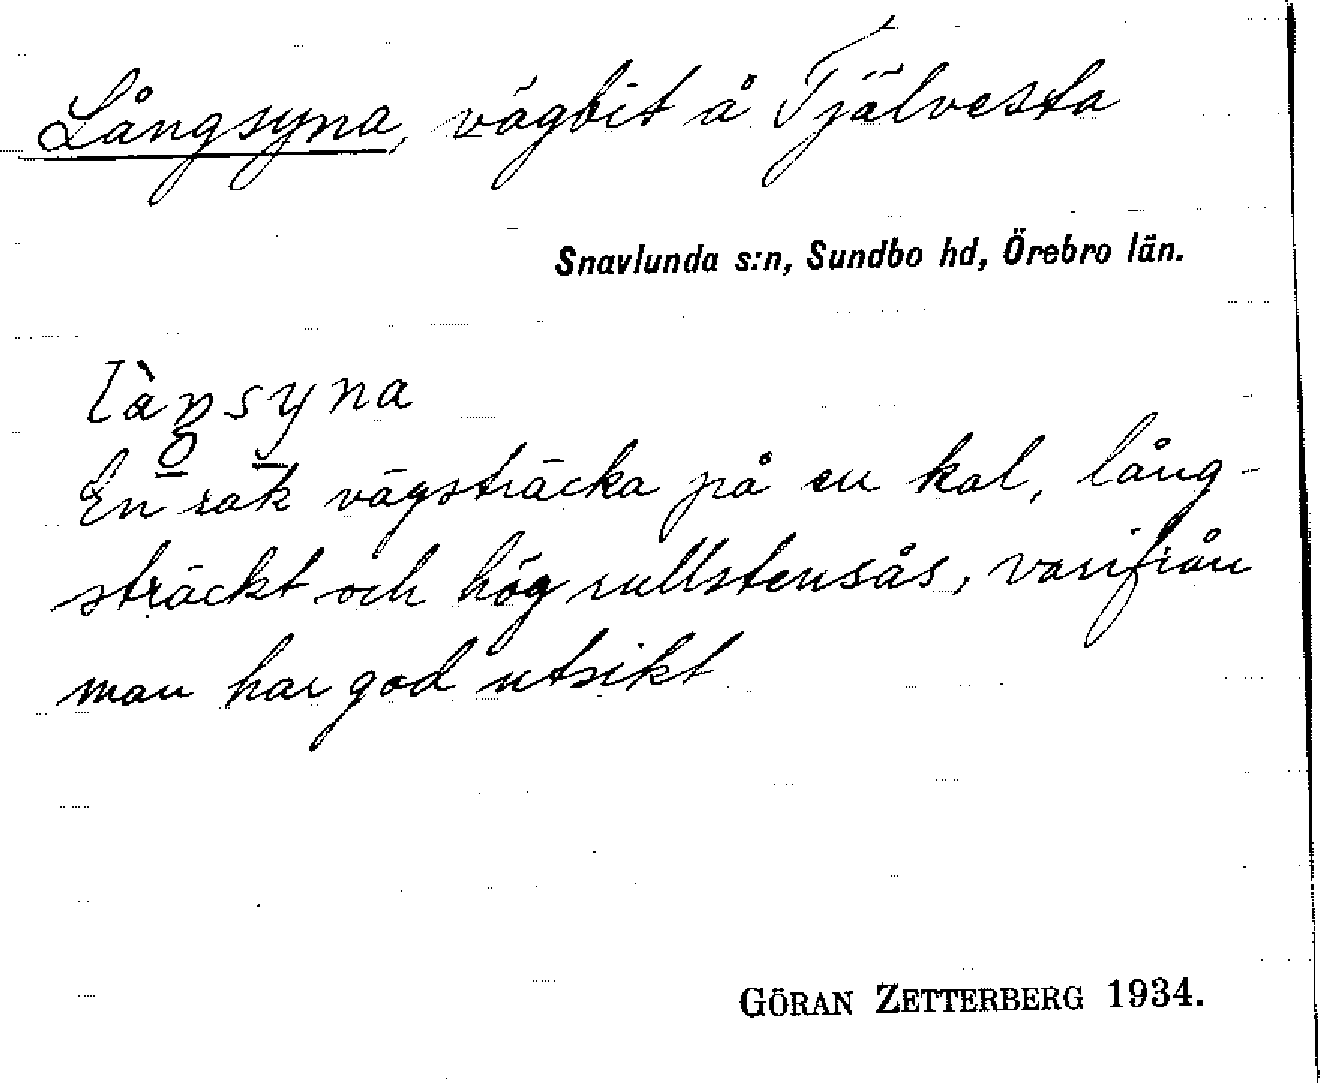 Långsyna, vägbit å Tjälvesta
Snavlunda s:n, Sundbo hd, Örebro län.
làŋsyna
En rak vägsträcka på en kal, lång-
sträckt och hög rullstensås, varifrån
man har god utsikt
GÖRAN ZETTERBERG 1934.